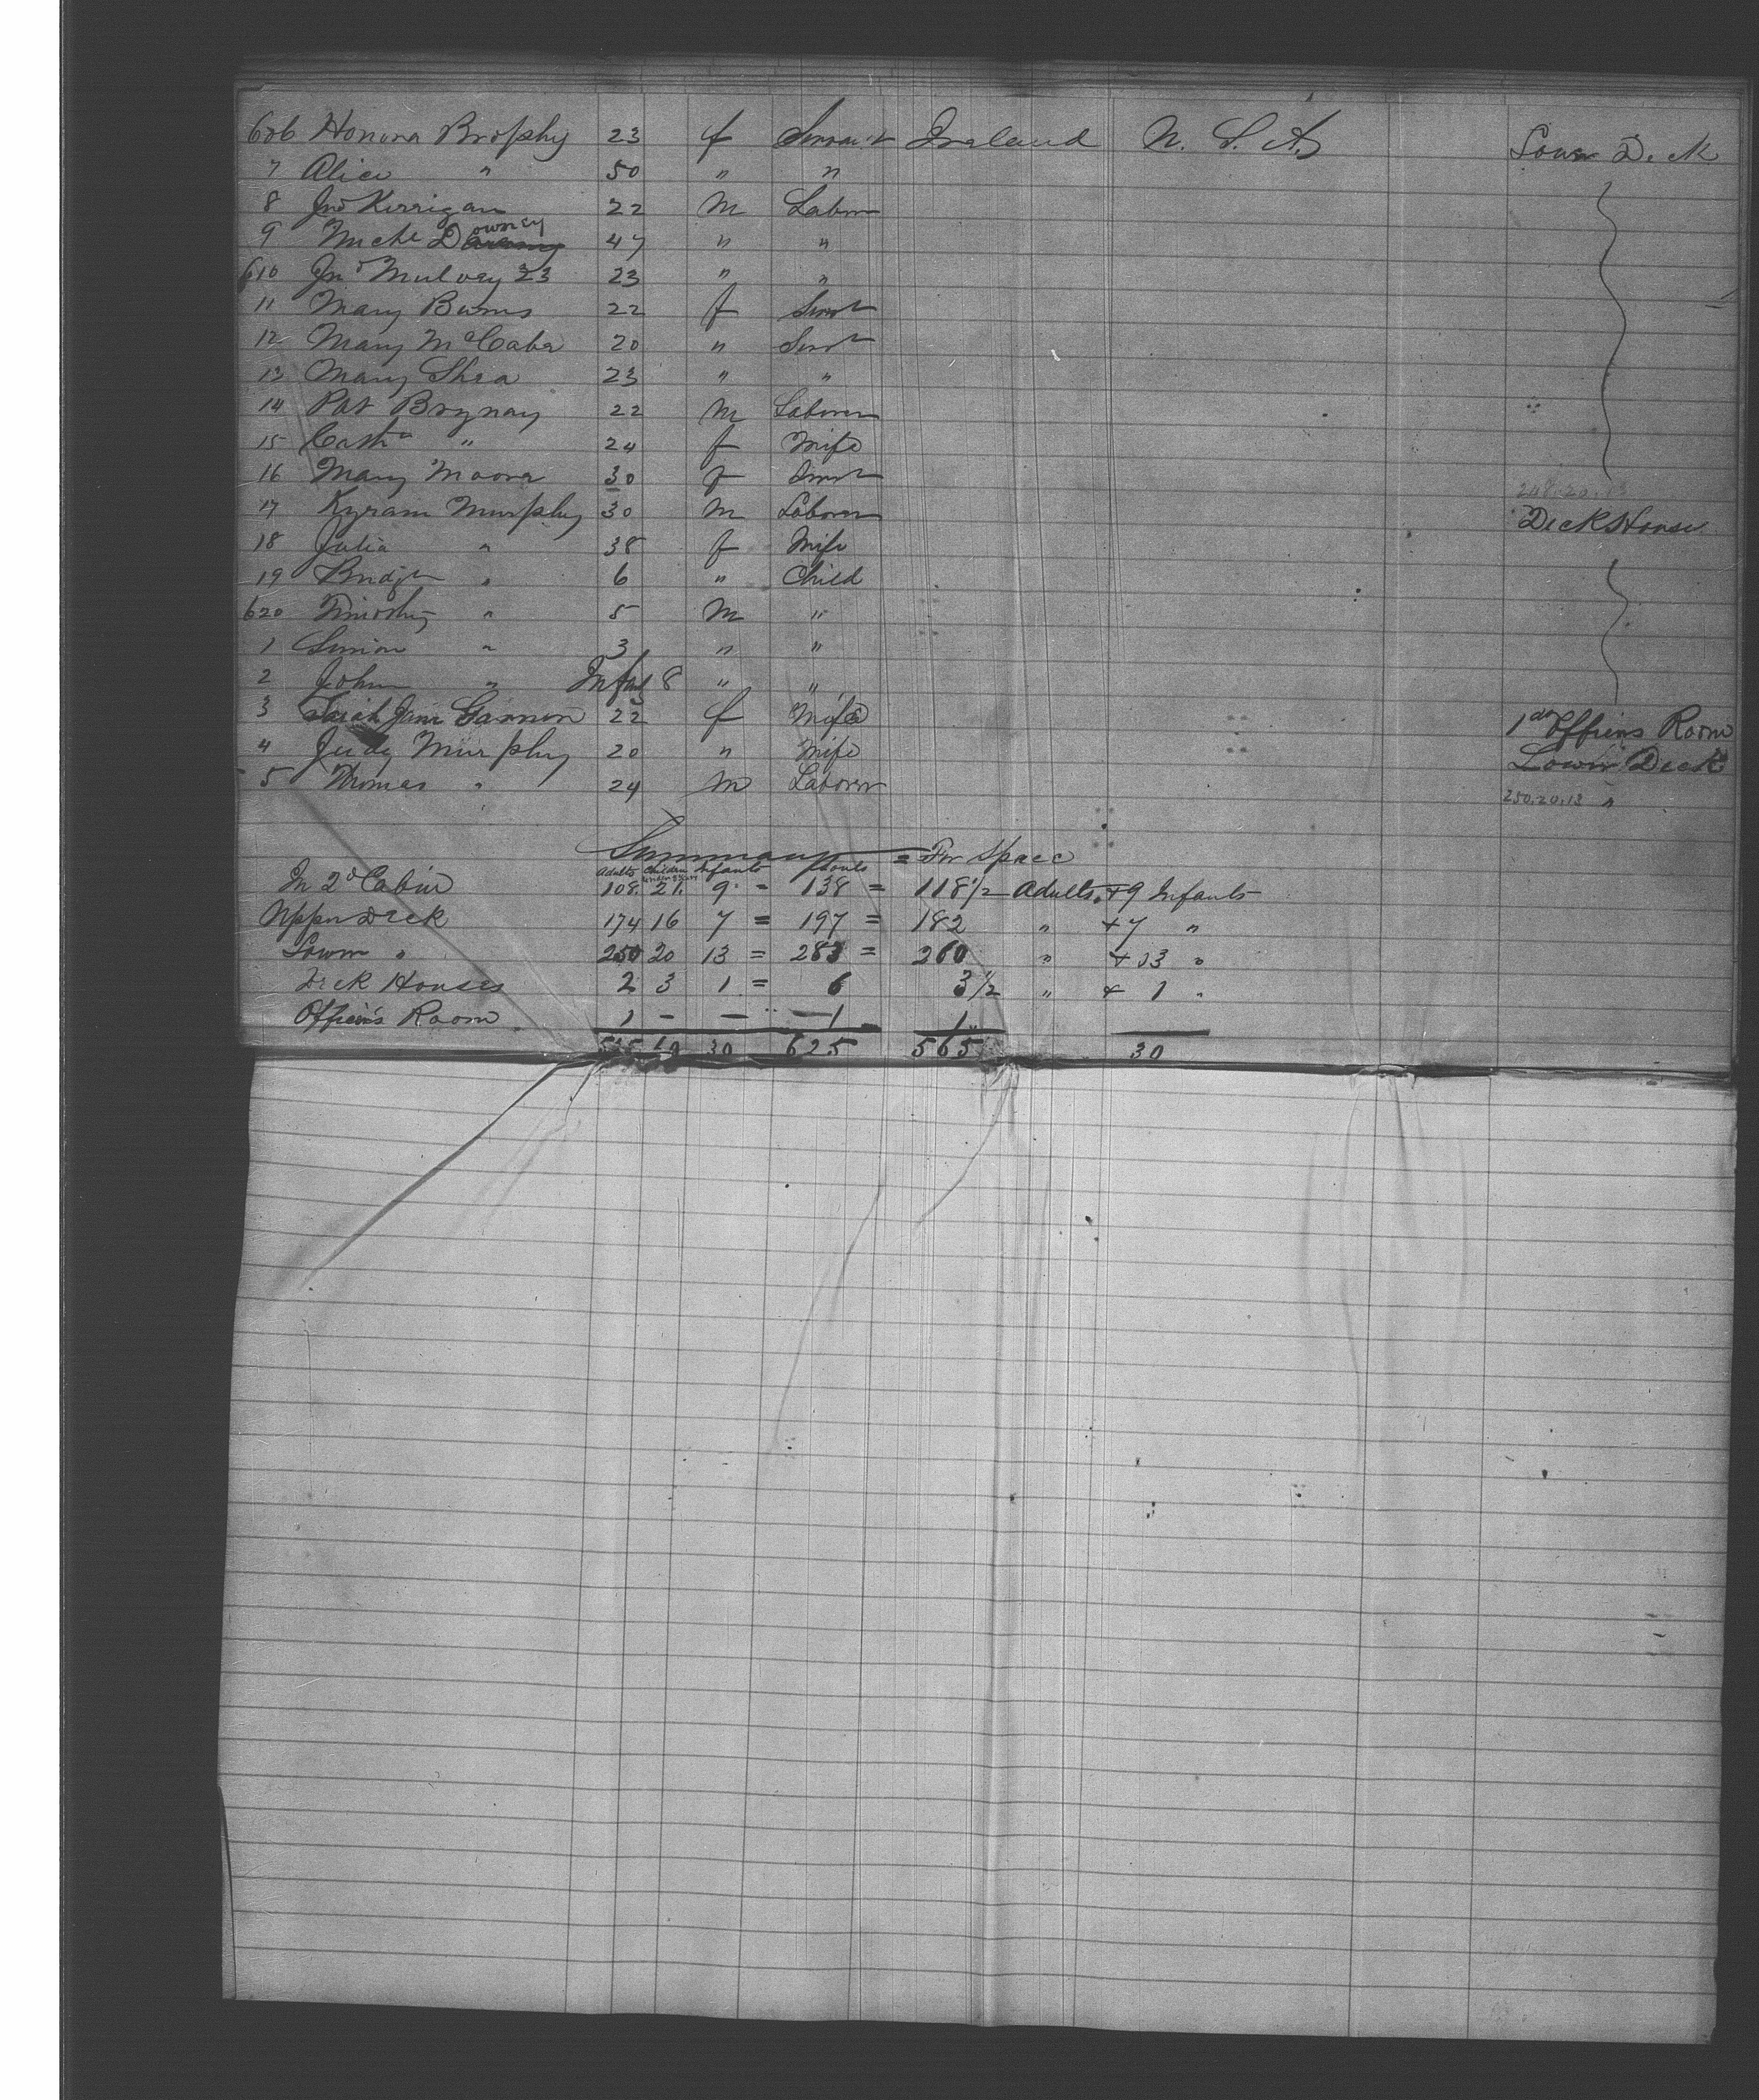 606 Honora Brophy 23 f Servant Ireland U. S. A. Lower Deck
7 Alice " 50 " "
8 Jno Kerrigan 22 M Labor
9 Michl Downey 47 " "
610 Jno Mulvey 23 23 " "
11 Mary Burns 22 f Servt
12 Mary McCabe 20 " Servt
13 Mary Shea 23 " "
14 Pat 22 M Laborer
15 Cathe " 24 f Wife
16 Mary Moore 30 f Servt
248.20.13
17 Kyram Murphy 30 M Laborer Deck House
18 Julia " 38 f Wife
19 Bridgt " 6 " Child
620 Timothy " 5 M "
1 Simon " 3 " "
2 John " Infant 8 " "
3 Sarah Jane Gannon 22 f Wife 1st Officers Room
4 Judy Murphy 20 " Wife Lower Deck
5 Thomas " 24 M Laborer 250.20.13 "
Summary = For Space
Adults Children Infants
In 2d Cabin 108. 21. 9 = 138 = 118 1/2 Adults + 9 Infants
Upper Deck 174 16 7 = 197 = 182 " + 7 "
Lower " 250 20 13 = 283 = 260 " + 13 "
Deck Houses 2 3 1 = 6 3 1/2 " + 1 "
Officers Room 1 - - 1 1
535 60 30 625 565 30